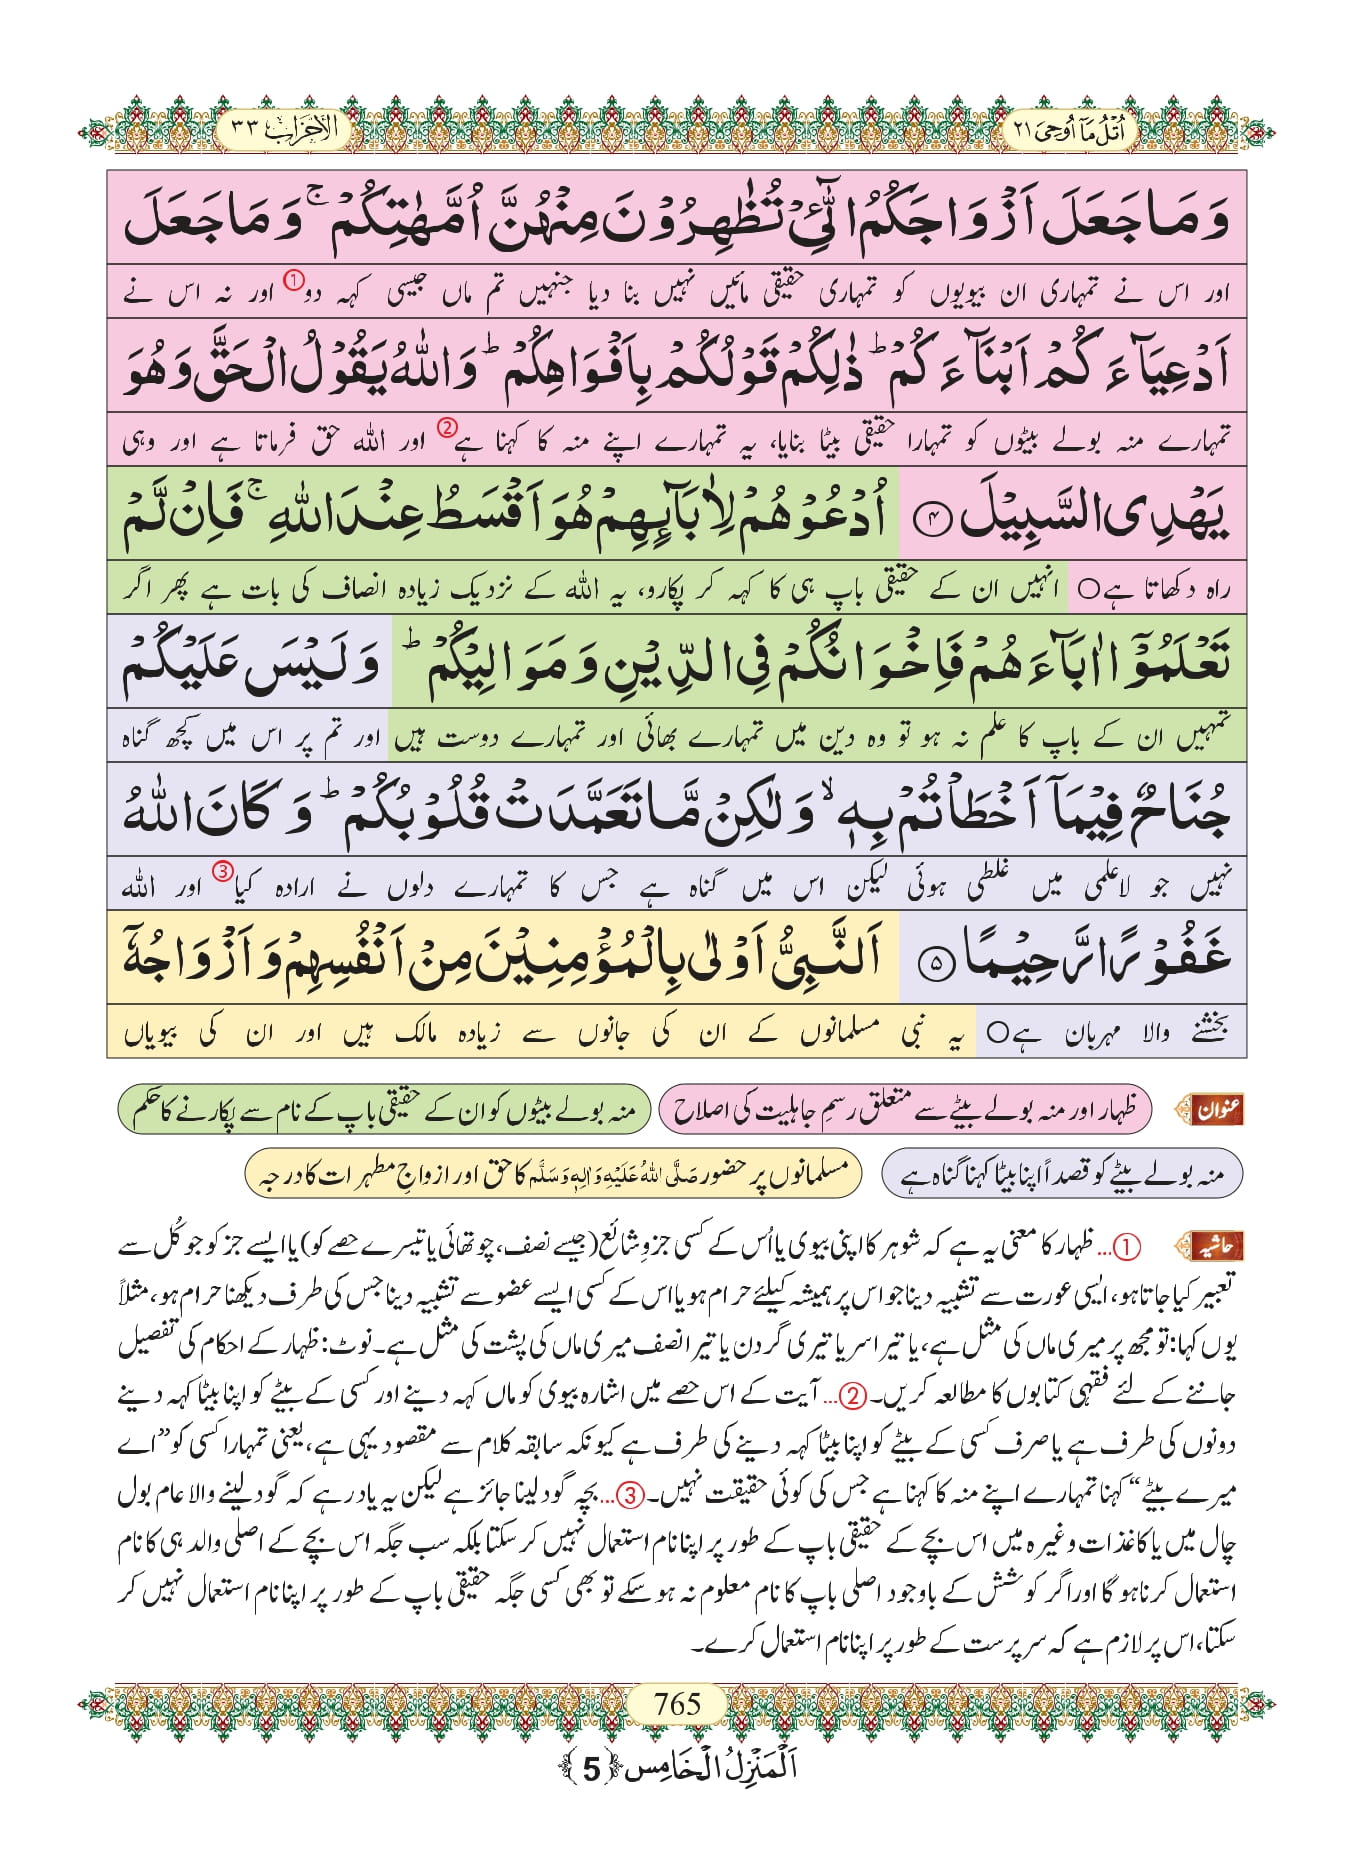 اُتْلُ مَاۤ اُوْحِیَ ۲۱
الاحزاب ۳۳
وَ مَا جَعَلَ اَزْوَاجَكُمُ الّٰٓـِٔیْ تُظٰهِرُوْنَ مِنْهُنَّ اُمَّهٰتِكُمْ ۚ وَ مَا جَعَلَ
اور اس نے تمہاری ان بیویوں کو تمہاری حقیقی مائیں نہیں بنا دیا جنہیں تم ماں جیسی کہہ دو① اور نہ اس نے
اَدْعِیَآءَكُمْ اَبْنَآءَكُمْ ؕ ذٰلِكُمْ قَوْلُكُمْ بِاَفْوَاهِكُمْ ؕ وَ اللّٰهُ یَقُوْلُ الْحَقَّ وَ هُوَ
تمہارے منہ بولے بیٹوں کو تمہارا حقیقی بیٹا بنایا، یہ تمہارے اپنے منہ کا کہنا ہے② اور اللہ حق فرماتا ہے اور وہی
یَهْدِی السَّبِیْلَ ﴿۴﴾ اُدْعُوْهُمْ لِاٰبَآىِٕهِمْ هُوَ اَقْسَطُ عِنْدَ اللّٰهِ ۚ فَاِنْ لَّمْ
راہ دکھاتا ہے○ انہیں ان کے حقیقی باپ ہی کا کہہ کر پکارو، یہ اللہ کے نزدیک زیادہ انصاف کی بات ہے پھر اگر
تَعْلَمُوْۤا اٰبَآءَهُمْ فَاِخْوَانُكُمْ فِی الدِّیْنِ وَ مَوَالِیْكُمْ ؕ وَ لَیْسَ عَلَیْكُمْ
تمہیں ان کے باپ کا علم نہ ہو تو وہ دین میں تمہارے بھائی اور تمہارے دوست ہیں اور تم پر اس میں کچھ گناہ
جُنَاحٌ فِیْمَاۤ اَخْطَاْتُمْ بِهٖ ۙ وَ لٰكِنْ مَّا تَعَمَّدَتْ قُلُوْبُكُمْ ؕ وَ كَانَ اللّٰهُ
نہیں جو لاعلمی میں غلطی ہوئی لیکن اس میں گناہ ہے جس کا تمہارے دلوں نے ارادہ کیا③ اور اللہ
غَفُوْرًا رَّحِیْمًا ﴿۵﴾ اَلنَّبِیُّ اَوْلٰى بِالْمُؤْمِنِیْنَ مِنْ اَنْفُسِهِمْ وَ اَزْوَاجُهٗۤ
بخشنے والا مہربان ہے○ یہ نبی مسلمانوں کے ان کی جانوں سے زیادہ مالک ہیں اور ان کی بیویاں
عنوان ظہار اور منہ بولے بیٹے سے متعلق رسمِ جاہلیت کی اصلاح منہ بولے بیٹوں کو ان کے حقیقی باپ کے نام سے پکارنے کا حکم
منہ بولے بیٹے کو قصداً اپنا بیٹا کہنا گناہ ہے مسلمانوں پر حضور صَلَّی اللّٰهُ عَلَیْهِ وَاٰلِهٖ وَسَلَّم کا حق اور ازواجِ مطہرات کا درجہ
حاشیہ ①… ظہار کا معنی یہ ہے کہ شوہر کا اپنی بیوی یا اُس کے کسی جزوِ شائع (جیسے نصف، چوتھائی یا تیسرے حصے کو) یا ایسے جز کو جو کُل سے
تعبیر کیا جاتا ہو، ایسی عورت سے تشبیہ دینا جو اس پر ہمیشہ کیلئے حرام ہو یا اس کے کسی ایسے عضو سے تشبیہ دینا جس کی طرف دیکھنا حرام ہو، مثلاً
یوں کہا: تو مجھ پر میری ماں کی مثل ہے، یا تیرا سر یا تیری گردن یا تیرا نصف میری ماں کی پشت کی مثل ہے۔ نوٹ: ظہار کے احکام کی تفصیل
جاننے کے لئے فقہی کتابوں کا مطالعہ کریں۔ ②… آیت کے اس حصے میں اشارہ بیوی کو ماں کہہ دینے اور کسی کے بیٹے کو اپنا بیٹا کہہ دینے
دونوں کی طرف ہے یا صرف کسی کے بیٹے کو اپنا بیٹا کہہ دینے کی طرف ہے کیونکہ سابقہ کلام سے مقصود یہی ہے، یعنی تمہارا کسی کو ”اے
میرے بیٹے“ کہنا تمہارے اپنے منہ کا کہنا ہے جس کی کوئی حقیقت نہیں۔ ③… بچہ گود لینا جائز ہے لیکن یہ یاد رہے کہ گود لینے والا عام بول
چال میں یا کاغذات وغیرہ میں اس بچے کے حقیقی باپ کے طور پر اپنا نام استعمال نہیں کر سکتا بلکہ سب جگہ اس بچے کے اصلی والد ہی کا نام
استعمال کرنا ہو گا اور اگر کوشش کے باوجود اصلی باپ کا نام معلوم نہ ہو سکے تو بھی کسی جگہ حقیقی باپ کے طور پر اپنا نام استعمال نہیں کر
سکتا، اس پر لازم ہے کہ سرپرست کے طور پر اپنا نام استعمال کرے۔
765
اَلْمَنْزِلُ الْخَامِس ﴿5﴾